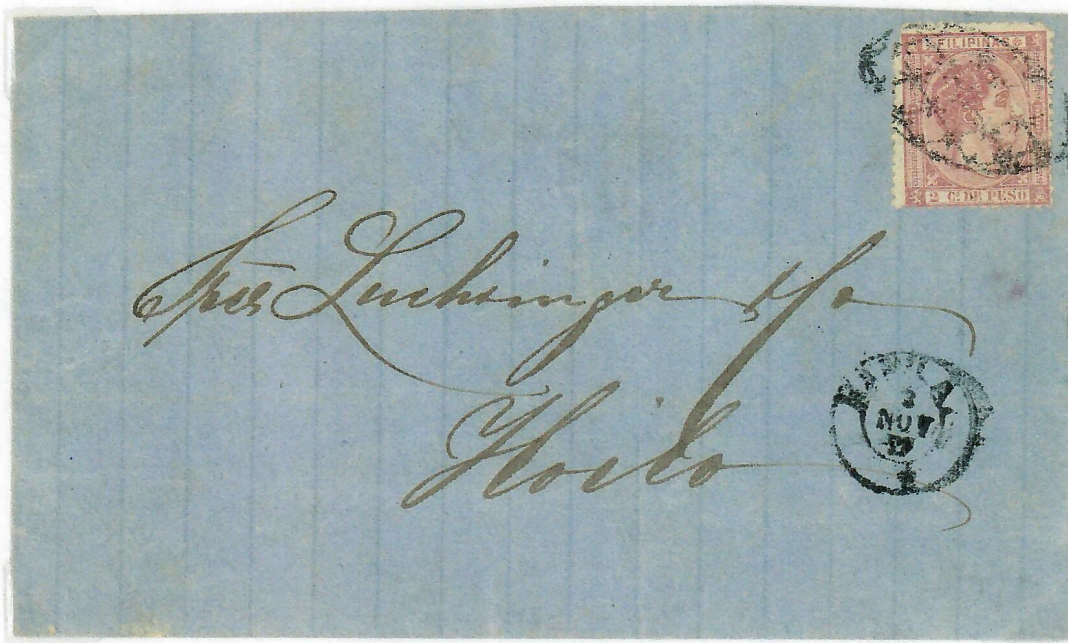 FILIPINAS
2 C. DE PESO
Sres Luchsinger y Ca
Iloilo
MANILA
NOV